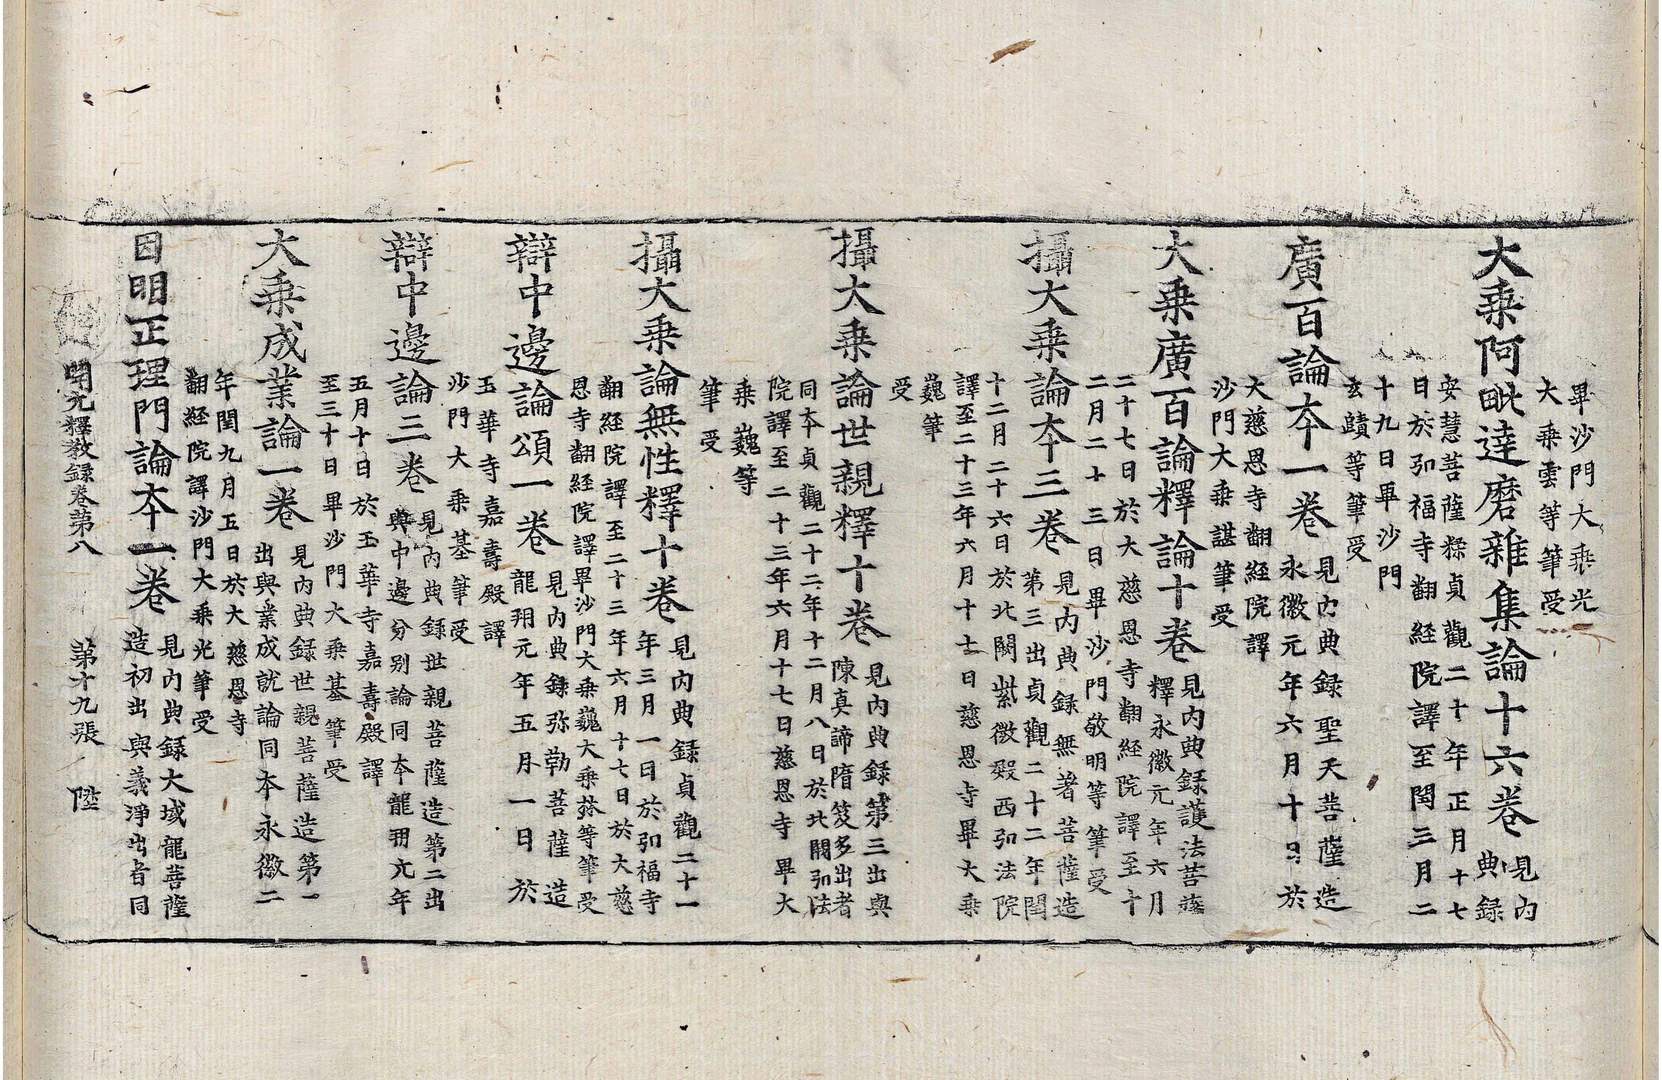 畢沙門大乘光
大乘雲等筆受
大乘阿毗達磨雜集論十六卷
見内
典録
安慧菩薩糅貞觀二十年正月十七
日於弘福寺翻経院譯至閏三月二
十九日畢沙門
玄賾等筆受
廣百論本一卷
見内典録聖天菩薩造
永徽元年六月十日於
大慈恩寺翻経院譯
沙門大乘諶筆受
大乘廣百論釋論十卷
見内典録護法菩薩
釋永徽元年六月
二十七日於大慈恩寺翻経院譯至十
二月二十三日畢沙門敬明等筆受
攝大乘論本三卷
見内典録無著菩薩造
第三出貞觀二十二年閏
十二月二十六日於北闕紫微殿西弘法院
譯至二十三年六月十七日慈恩寺畢大乘
巍筆
受
攝大乘論世親釋十卷
見内典録第三出與
陳真諦隋笈多出者
同本貞觀二十二年十二月八日於北闕弘法
院譯至二十三年六月十七日慈恩寺畢大
乘巍等
筆受
攝大乘論無性釋十卷
見内典録貞觀二十一
年三月一日於弘福寺
翻経院譯至二十三年六月十七日於大慈
恩寺翻経院譯畢沙門大乘巍大乘林等筆受
辯中邊論頌一卷
見内典録弥勒菩薩造
龍朔元年五月一日於
玉華寺嘉壽殿譯
沙門大乘基筆受
辯中邊論三卷
見内典録世親菩薩造第二出
與中邊分别論同本龍朔元年
五月十日於玉華寺嘉壽殿譯
至三十日畢沙門大乘基筆受
大乘成業論一卷
見内典録世親菩薩造第一
出與業成就論同本永徽二
年閏九月五日於大慈恩寺
翻経院譯沙門大乘光筆受
因明正理門論本一卷
見内典録大域龍菩薩
造初出與義淨出者同
開元釋教録卷第八　第十九張　陞